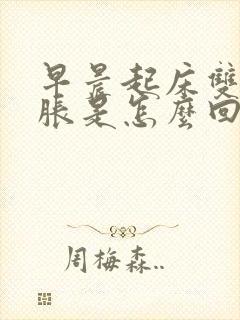 早晨起床雙
脹是怎麼回
周梅森..